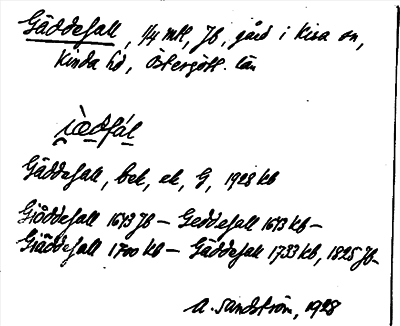 Gäddefall, 1/4 mtl, Jb, gård i Kisa sn,
Kinda hd, Östergötl. län
i̯æ̀dfál
Gäddefall, beb, ek, G, 1928 kb
Giöddefall 1643 Jb – Geddefall 1673 kb –
Giäddefall 1700 kb – Gäddefall 1733 kb, 1825 Jb –
A. Sandström, 1928